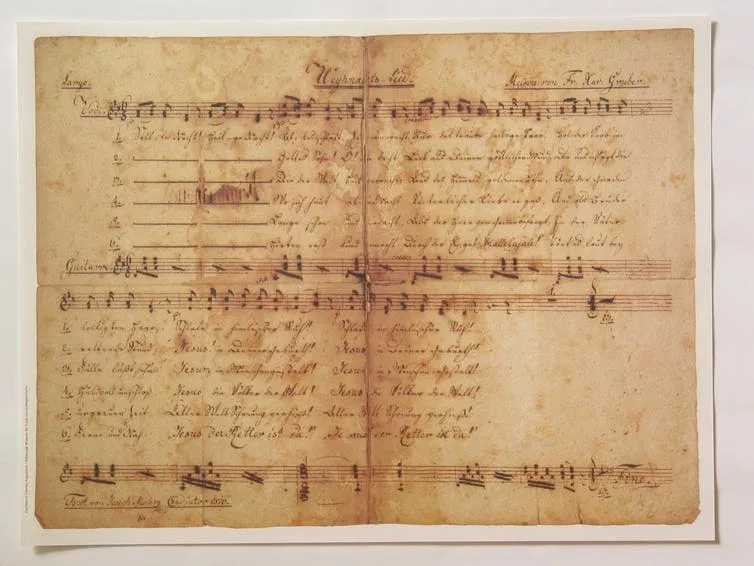 Weyhnachts-Lied.
Largo. Melodie von Fr. Xav. Gruber.
1. Stille Nacht! Heilige Nacht! Alles schläft. Einsam wacht Nur das traute heilige Paar. Holder Knab' im
2. Gottes Sohn! O! wie lacht Lieb' aus deinem göttlichen Mund, Da schlägt uns die
3. Die der Welt Heil gebracht, Aus des Himmels goldenen Höhn, Uns der Gnaden
4. Wo sich heut alle Macht Väterlicher Liebe ergoß, Und als Bruder
5. Lange schon uns bedacht, Als der Herr vom Grimme befreyt, In der Väter
6. Hirten erst kund gemacht Durch der Engel Halleluja! Tönt es laut bey
Guitarre.
1. lockigten Haar; Schlafe in himmlischer Ruh! Schlafe in himmlischer Ruh!
2. rettende Stund. Jesus! in deiner Geburt! Jesus in deiner Geburt!
3. Fülle läßt sehn Jesum in Menschengestalt! Jesum in Menschengestalt!
4. Huldvoll umschloß Jesus die Völker der Welt! Jesus die Völker der Welt!
5. urgrauer Zeit Aller Welt Schonung verhieß! Aller Welt Schonung verhieß!
6. Ferne und Nah: Jesus der Retter ist da! Jesus der Retter ist da!
Fine.
Text von Joseph Mohr Coadjutor 1816.